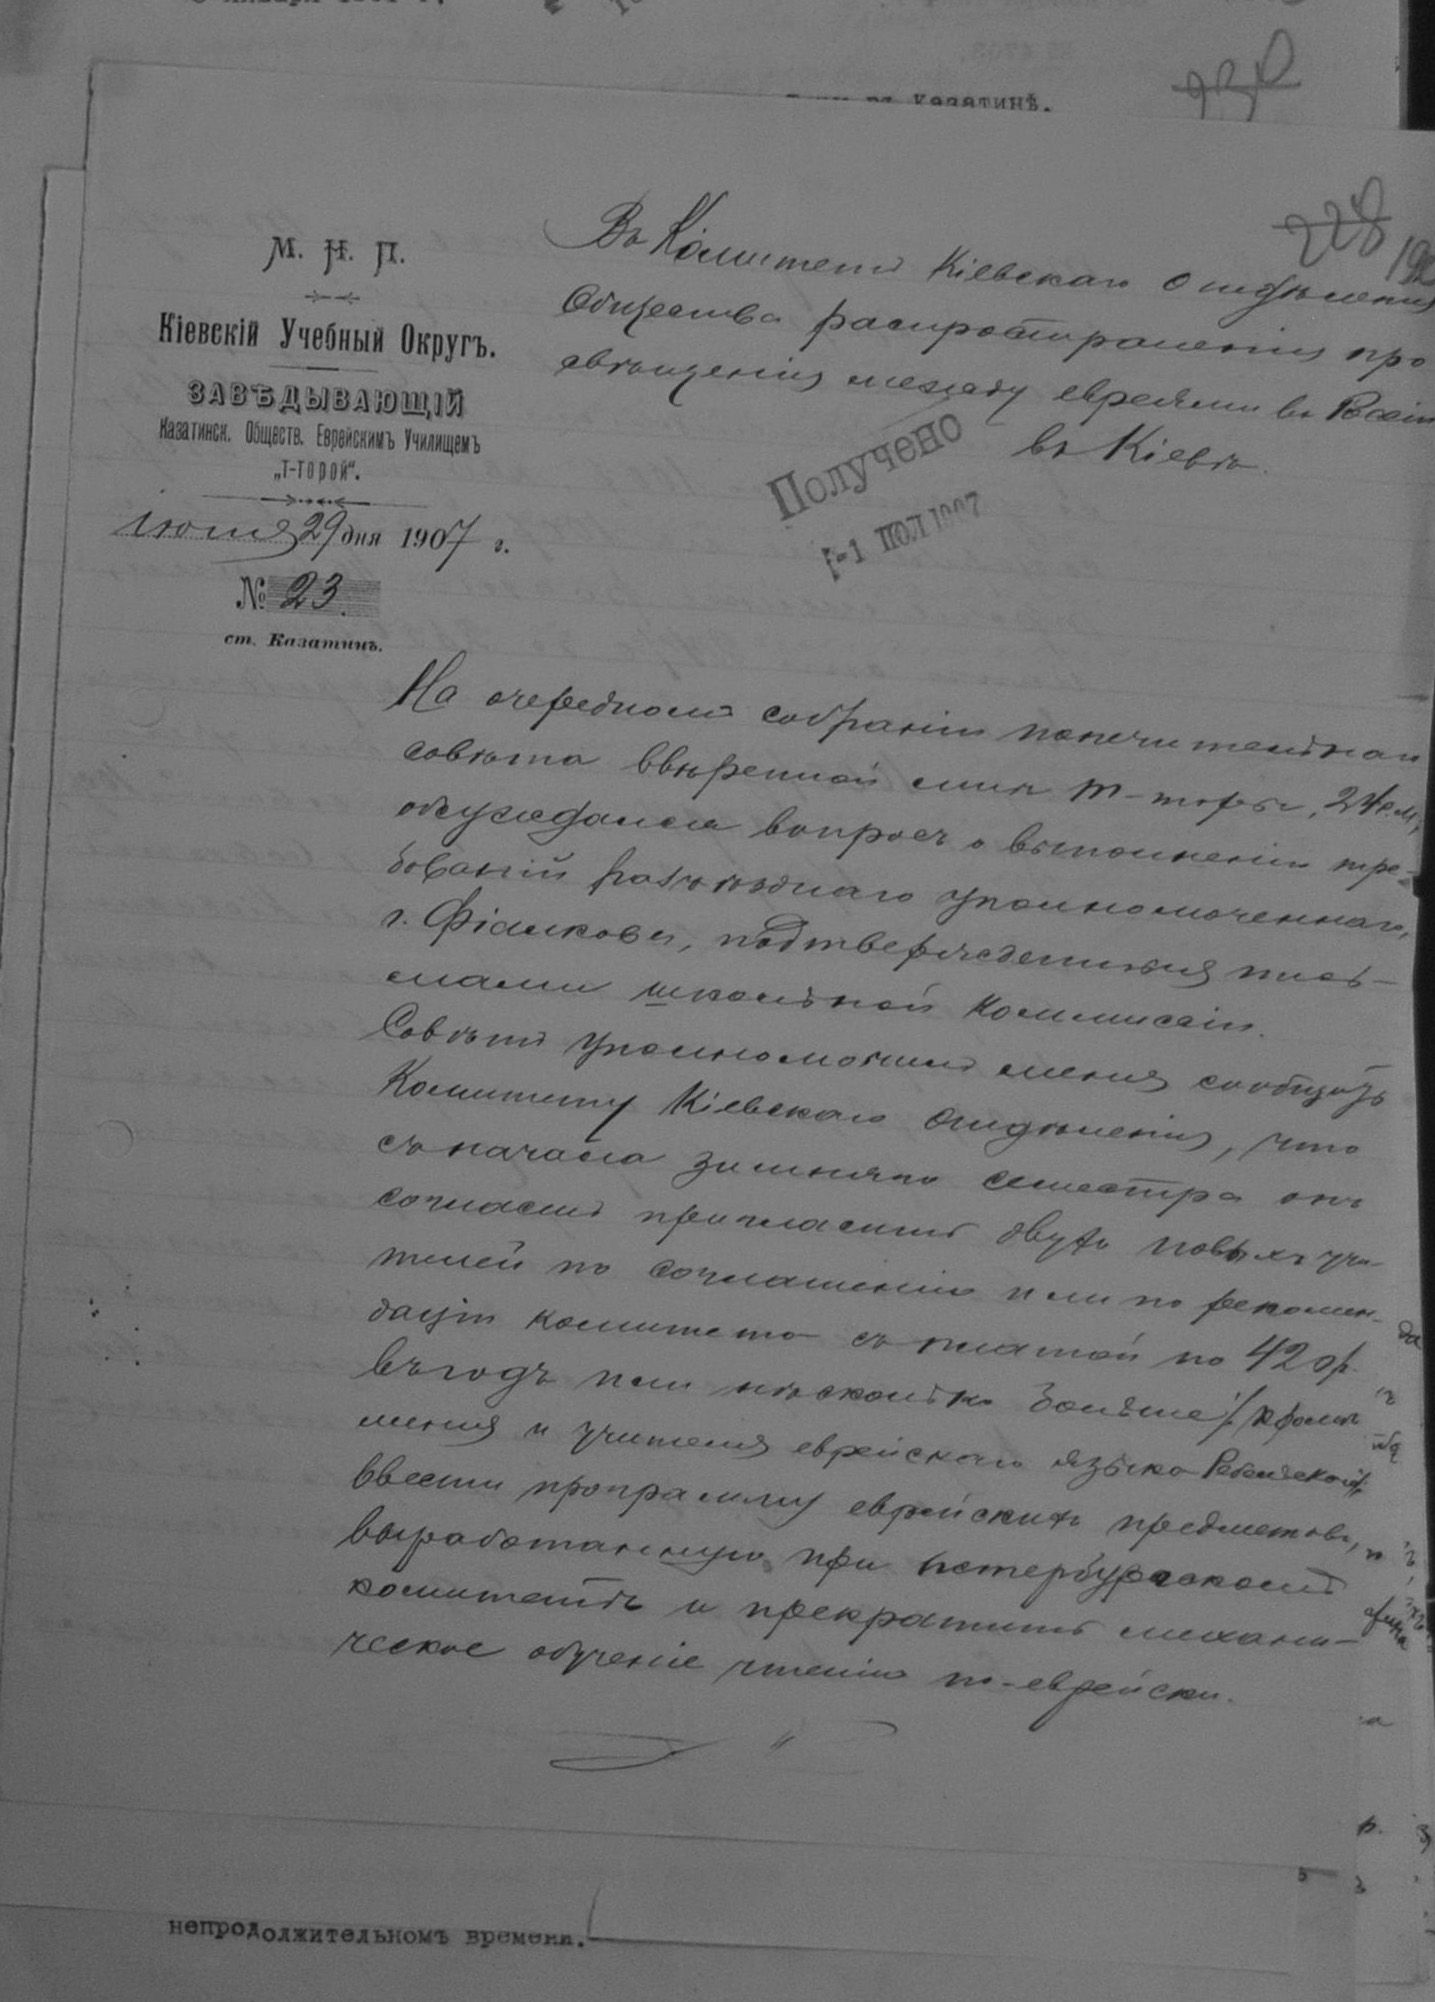 Казатинѣ.
230
228
М. Н. П.
Кіевскій Учебный Округъ.
ЗАВѢДЫВАЮЩІЙ
Казатинск. Обществ. Еврейскимъ Училищемъ
„Т-Торой“.
іюня 29 дня 1907 г.
№ 23.
ст. Казатинъ.
Въ Комитетъ Кіевскаго Отдѣленія
Общества распространенія про
свѣщенія между евреями въ Россіи
въ Кіевѣ.
Получено
-1 ІЮЛ 1907
На очередномъ собраніи попечительнаго
совѣта ввѣренной мнѣ Т-торы, 24 с.м.,
обсуждался вопросъ о выполненіи тре-
бованій разъѣзднаго уполномоченнаго,
г. Фіалкова, подтвержденныя пись-
мами школьной коммиссіи.
Совѣтъ уполномочилъ меня сообщить
Комитету Кіевскаго Отдѣленія, что
съ начала зимняго семестра онъ
согласенъ пригласить двухъ новыхъ учи-
телей по соглашенію или по рекомен-
даціи комитета съ платой по 420 р.
въ годъ или нѣсколько больше /: кромѣ
меня и учителя еврейскаго языка
ввести программу еврейскихъ предметовъ,
выработанную при петербургскомъ
комитетѣ и прекратить механи-
ческое обученіе чтенію по-еврейски.
непродолжительномъ времени.